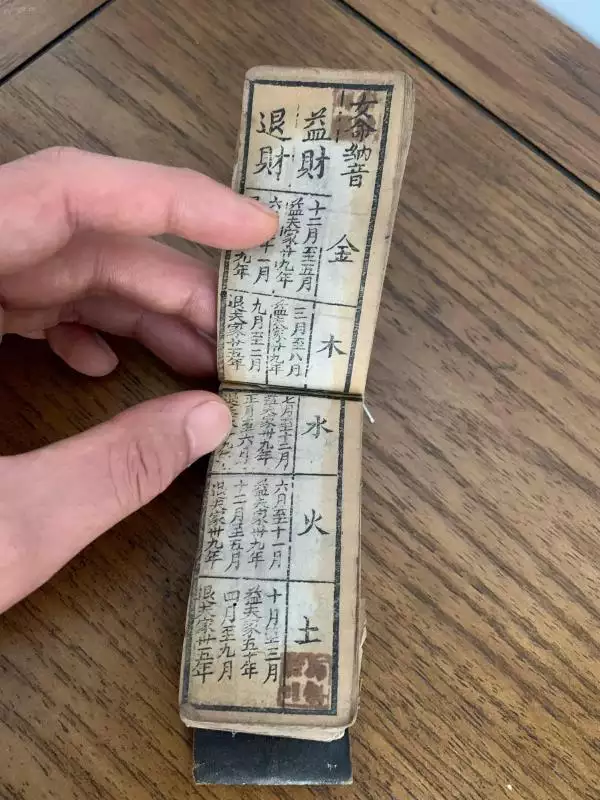 女命納音
益財
退財
金
十二月至五月
益夫家卅九年
六 十一月
九年
木
三月至八月
益夫家卅九年
九月至二月
退夫家卅五年
水
七月至十二月
益夫家卅九年
正月至六月
火
六月至十一月
益夫家卅九年
十二月至五月
退夫家卅九年
土
十月至三月
益夫家五十年
四月至九月
退夫家卅五年